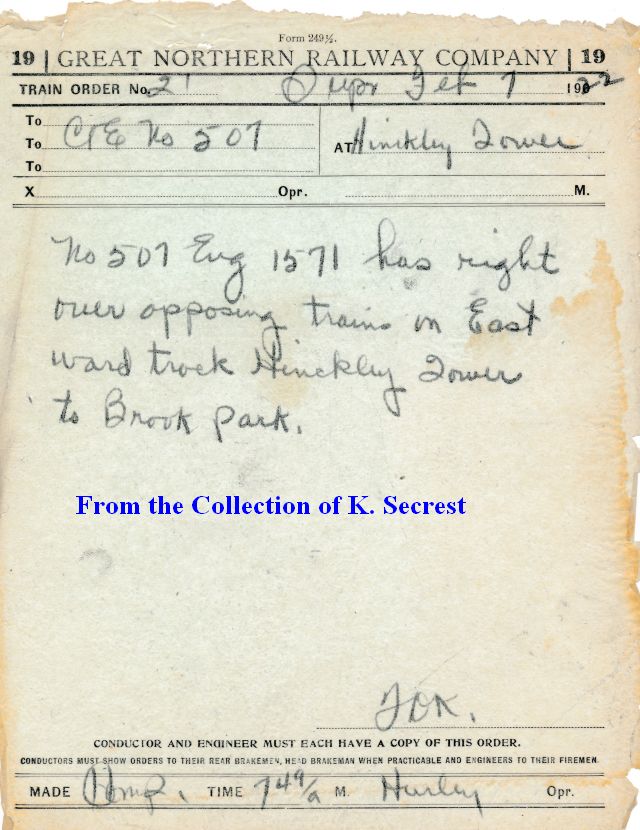 Form 249½.
19 | GREAT NORTHERN RAILWAY COMPANY | 19
TRAIN ORDER No. 21 Supr Feb 7 1922
To
To C&E No 507 AT Hinckley Tower
To
X Opr. M.
No 507 Eng 1571 has right
over opposing trains on East
ward track Hinckley Tower
to Brook Park.
From the Collection of K. Secrest
CONDUCTOR AND ENGINEER MUST EACH HAVE A COPY OF THIS ORDER.
CONDUCTORS MUST SHOW ORDERS TO THEIR REAR BRAKEMEN, HEAD BRAKEMAN WHEN PRACTICABLE AND ENGINEERS TO THEIR FIREMEN.
MADE Comp. TIME 7 49/a M. Hurley Opr.